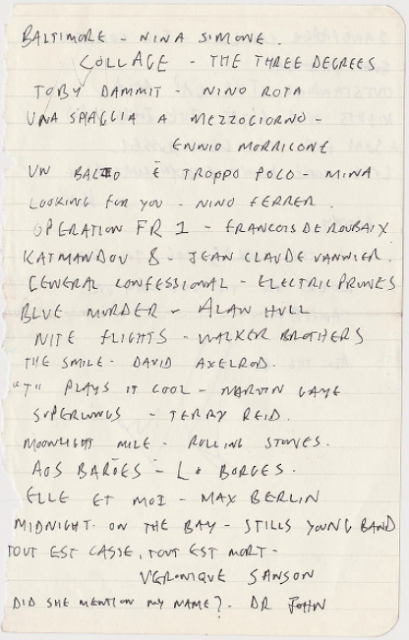 BALTIMORE - NINA SIMONE.
COLLAGE - THE THREE DEGREES
TOBY DAMMIT - NINO ROTA
UNA SPAGGIA A MEZZOGIORNO -
ENNIO MORRICONE
UN BACIO È TROPPO POCO - MINA
LOOKING FOR YOU - NINO FERRER.
OPERATION FR 1 - FRANCOIS DE ROUBAIX
KATMANDOU 8 - JEAN CLAUDE VANNIER.
GENERAL CONFESSIONAL - ELECTRIC PRUNES
BLUE MURDER - ALAN HULL
NITE FLIGHTS - WALKER BROTHERS
THE SMILE - DAVID AXELROD.
"T" PLAYS IT COOL - MARVIN GAYE
SUPERLUNGS - TERRY REID.
MOONLIGHT MILE - ROLLING STONES.
AOS BARÕES - Lô BORGES.
ELLE ET MOI - MAX BERLIN
MIDNIGHT. ON THE BAY - STILLS YOUNG BAND
TOUT EST CASSE, TOUT EST MORT -
VERONIQUE SANSON
DID SHE MENTION MY NAME?. DR JOHN